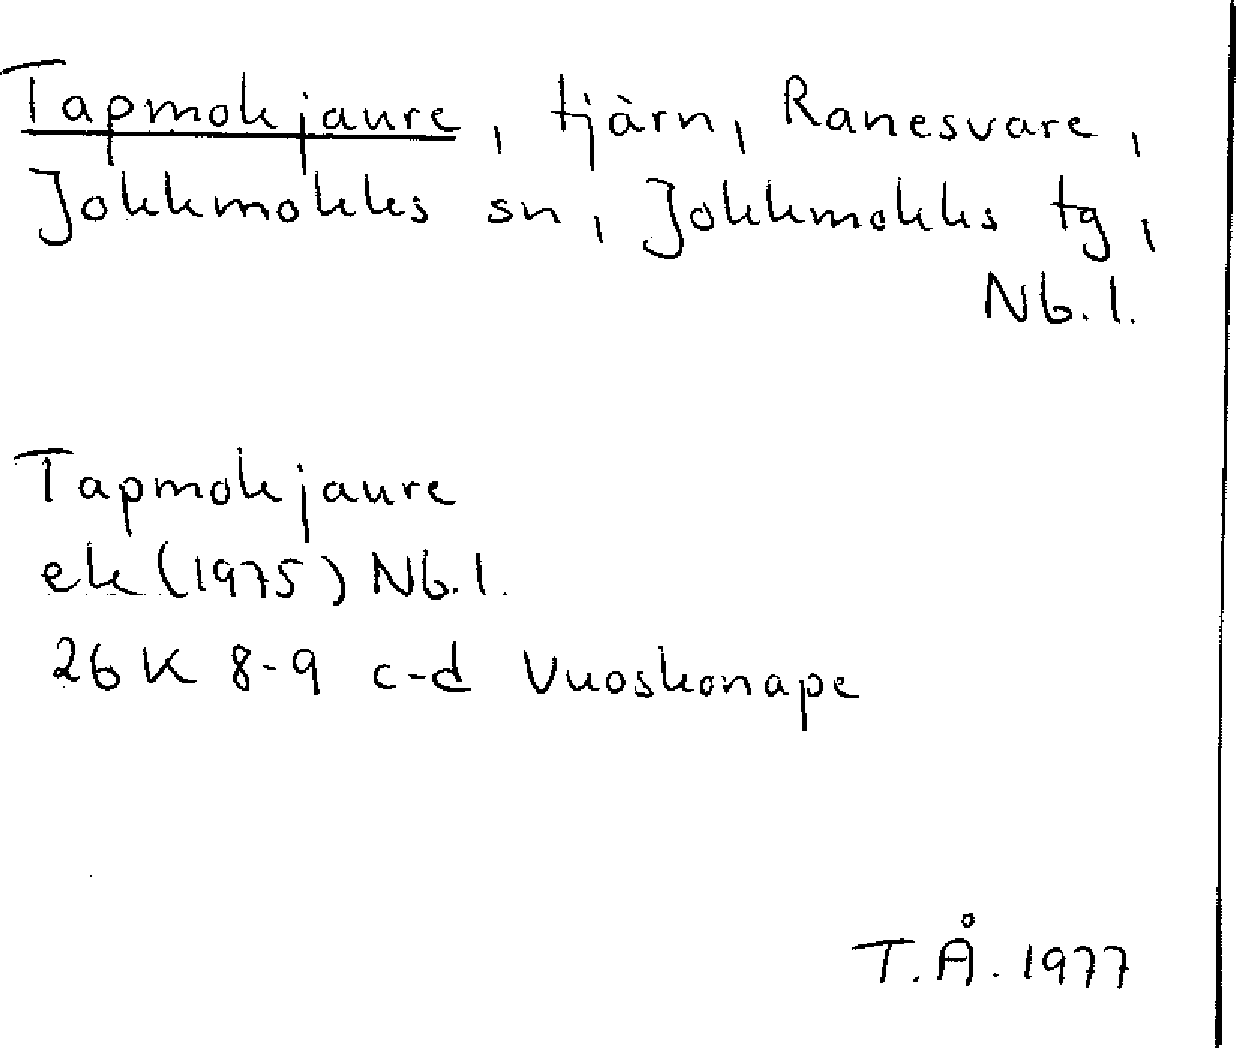 Tapmokjaure, tjärn, Ranesvare,
Jokkmokks sn, Jokkmokks tg,
Nb.l.
Tapmokjaure
ek (1975) Nb.l.
26 K 8-9 c-d Vuoskonape
T.Å. 1977